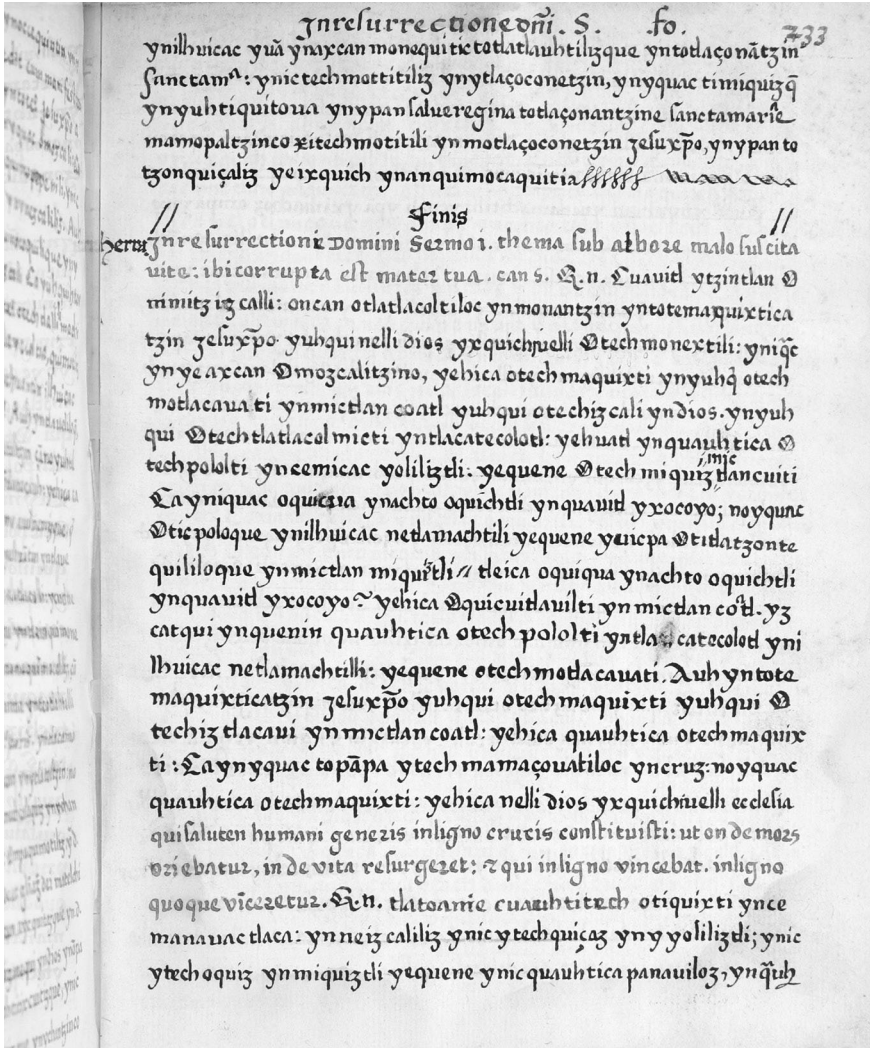 Jnresurrectione dñi. S. fo. 233
ynilhuicac yuã ynaxcan monequi tictotlatlauhtilizque yntotlaçonãtzin
sanctamᵃ: ynic techmottitiliz ynytlaçoconetzin, ynyquac timiquizq̃
ynyuhtiquitoua ynypan salueregina totlaçonantzine sanctamariẽ
mamopaltzinco xitechmotitili ynmotlaçoconetzin Jesuxp̃o, ynypanto
tzonquiçaliz yeixquich ynanquimocaquitia
// Finis //
Jnresurrectione Domini Sermo i. thema sub arbore malo suscita
vite: ibi corrupta est mater tua. can 8. R.n. Cuauitl ytzintlan O
nimitz iz calli: oncan otlatlacoltiloc ynmonantzin yntotemaquixtica
tzin Jesuxp̃o. yuhqui nelli dios yxquichiuelli Otechmonextili: yniq̃c
ynyeaxcan Omozcalitzino, yehica otechmaquixti ynyuhq̃ otech
motlacaua ti ynmictlan coatl yuhqui otechizcali yndios. ynyuh
qui Otechtlatlacolmicti yntlacatecolotl: yehuatl ynquauhtica O
techpololti yncemicac yoliliztli: yequene Otechmiquiz tlancuiti
mic
Cayniquac oquiqua ynachto oquichtli ynquauitl yxocoyo; noyquac
Oticpoloque ynilhuicac netlamachtili yequene yeuicpa Otitlatzonte
quililoque ynmictlan miquiztli // tleica oquiqua ynachto oquichtli
ynquauitl yxocoyo? yehica Oquicuitlauilti ynmictlan coatl. yz
catqui ynquenin quauhtica otechpololti yntla catecolotl yni
lhuicac netlamachtilli: yequene otechmotlacauati. Auh yntote
maquixticatzin Jesuxp̃o yuhqui otechmaquixti yuhqui O
techiz tlacaui ynmictlan coatl: yehica quauhtica otechmaquix
ti: Caynyquac topãpa ytech mamaçoualtiloc yncruz: noyquac
quauhtica otechmaquixti: yehica nelli dios yxquichiuelli ecclesia
quisaluten humani generis inligno crucis constituisti: ut onde mors
oriebatur, inde vita resurgeret: & qui inligno vincebat. inligno
quoque viceretur. R.n. tlatoanie cuauhtitech otiquixti ynce
manauac tlaca: ynneiz caliliz ynic ytechquiçaz ynyyoliliztli; ynic
ytechoquiz ynmiquiztli yequene ynic quauhtica panauiloz, ynq̃uh